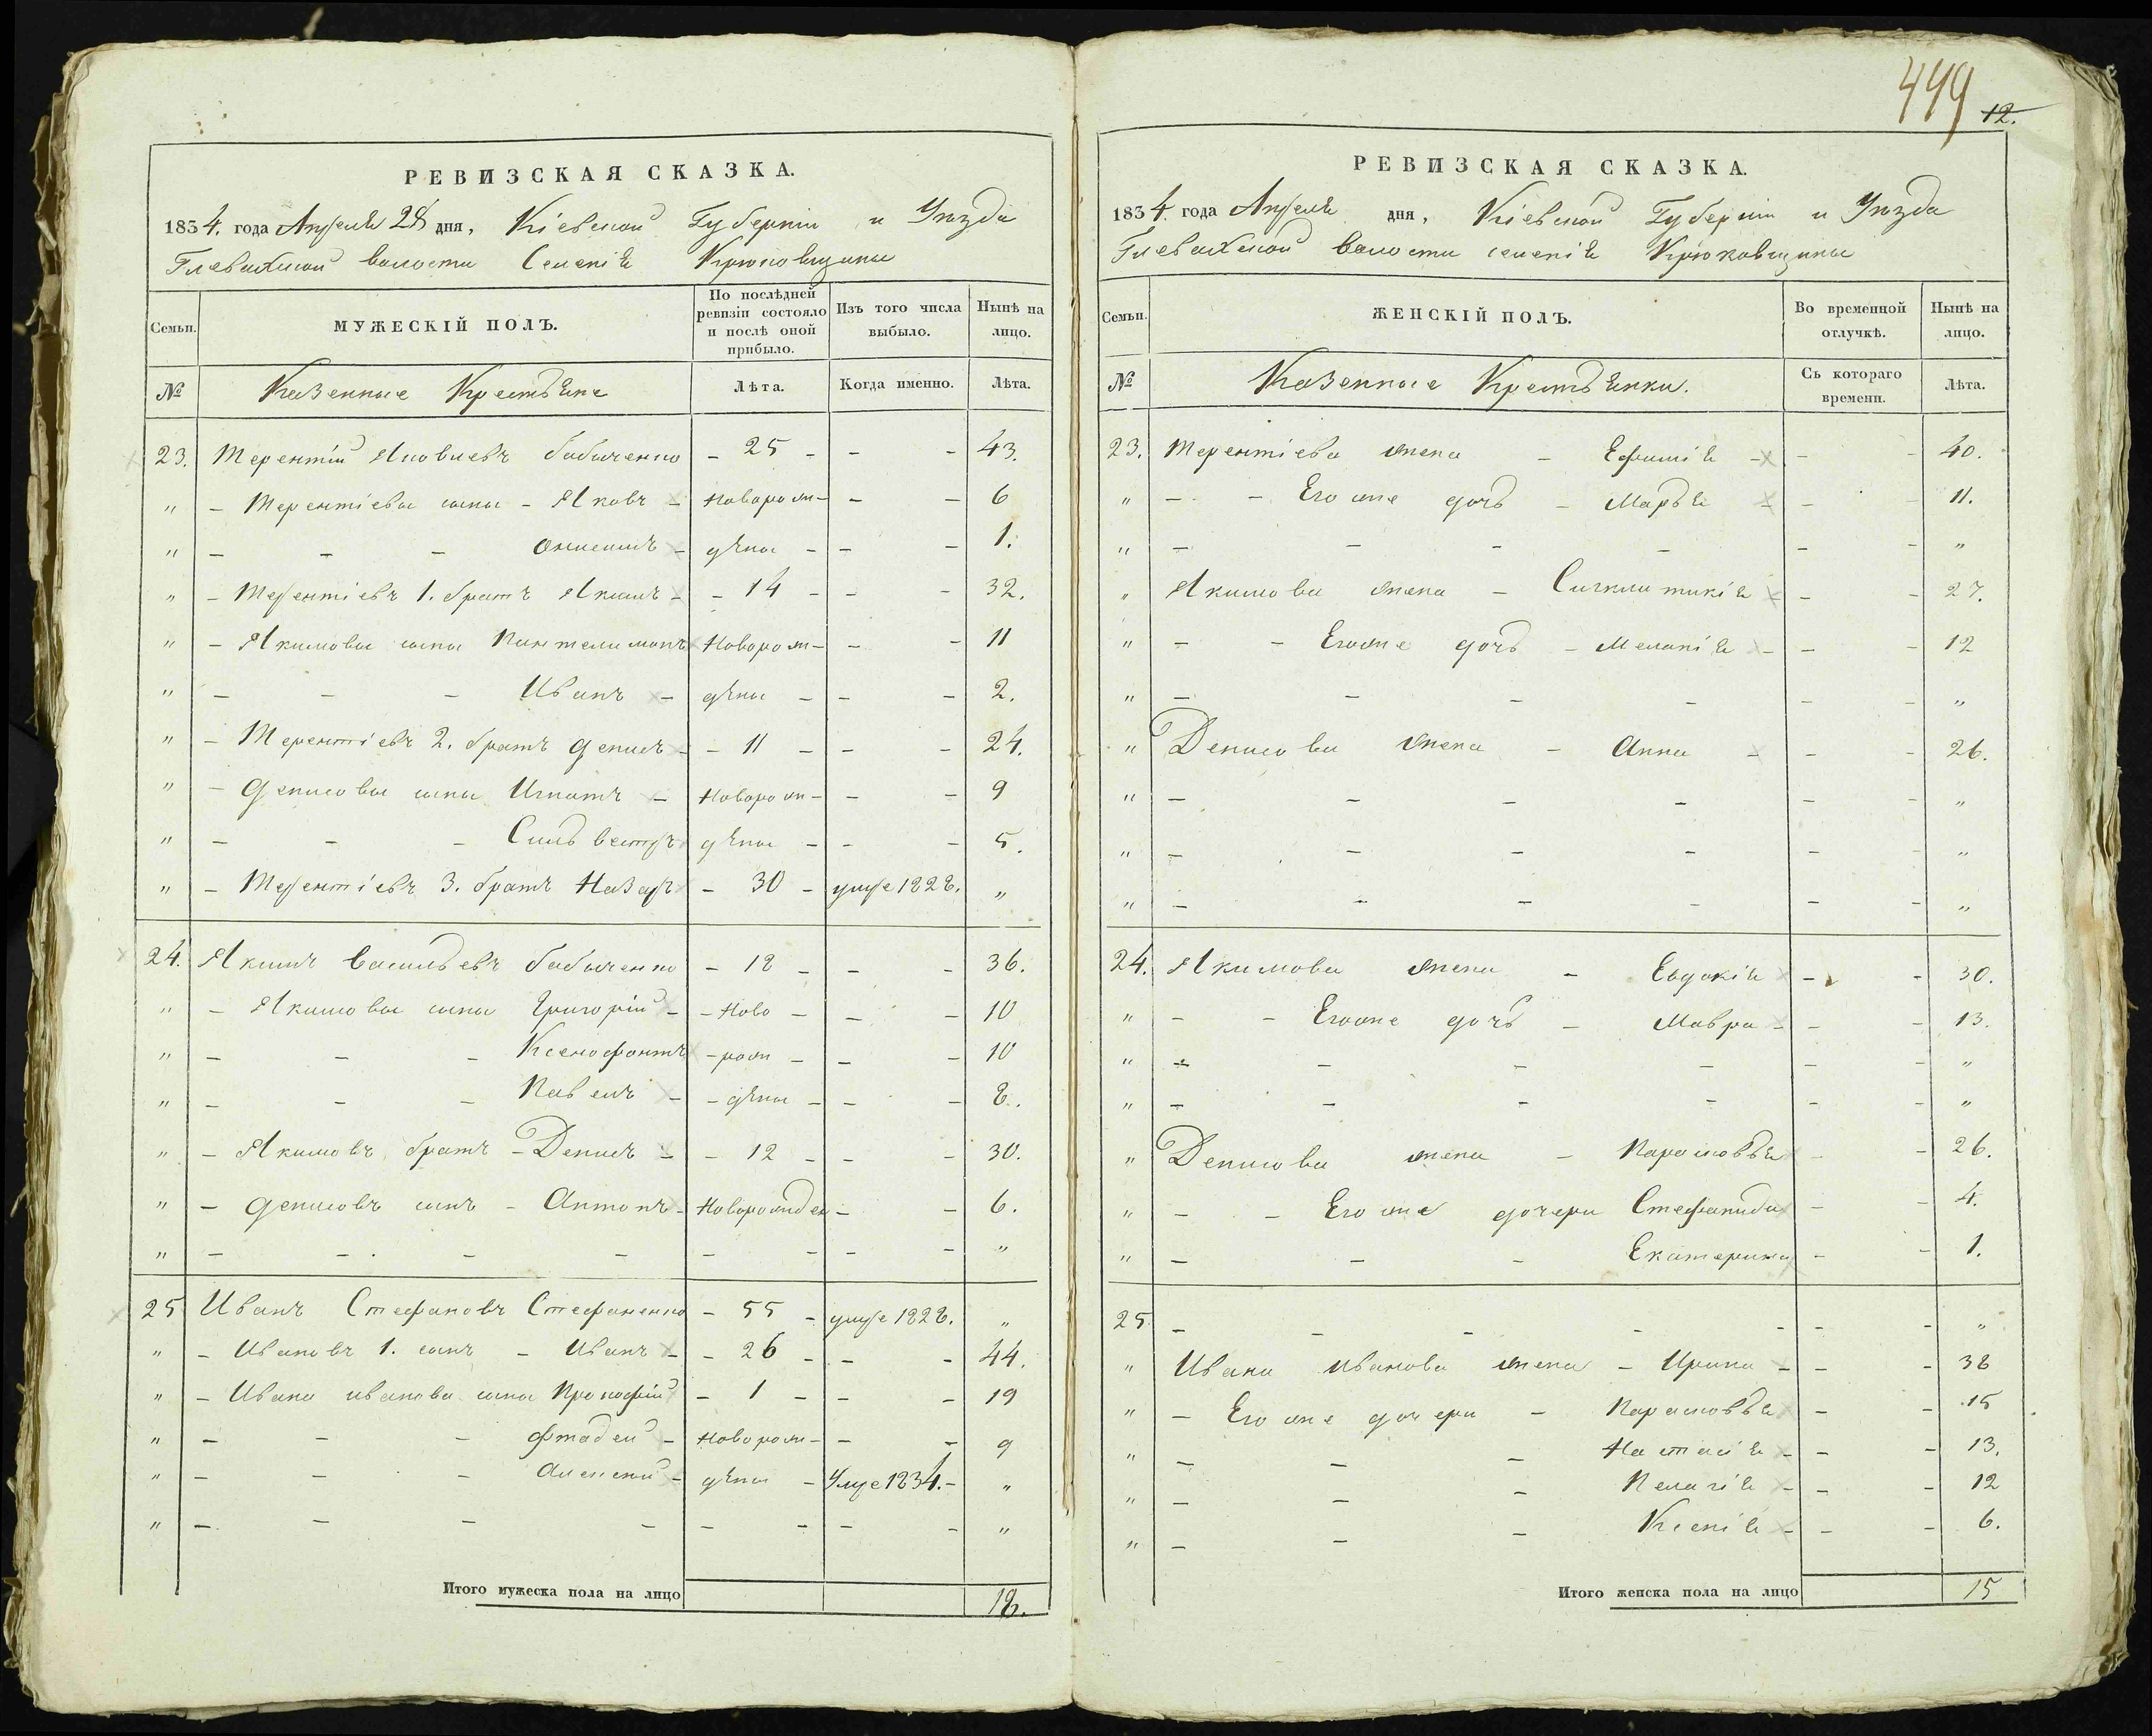 499 12.
РЕВИЗСКАЯ СКАЗКА.
1834. года Апреля 28 дня, Кіевской Губерніи и Уѣзда
Глевахской волости Селенія Крюковщины
Семьи. МУЖЕСКІЙ ПОЛЪ. По послѣдней ревизіи состояло и послѣ оной прибыло. Изъ того числа выбыло. Нынѣ на лицо.
№ Казенные Крестьяне Лѣта. Когда именно. Лѣта.
23. Терентій Яковлевъ Бабыченко - 25 - - - 43.
" - Терентіевы сыны - Яковъ - Новорож- - - 6
" - - - Онисимъ - дѣны - - - 1.
" - Терентіевъ 1. братъ Якимъ - - 14 - - - 32.
" - Якимовы сыны Пантелимонъ Новорож- - - 11
" - - - Иванъ - дѣны - - - 2.
" - Терентіевъ 2. братъ Денисъ - - 11 - - - 24.
" - Денисовы сыны Игнатъ - Новорож- - - 9
" - - - Сильвестръ дѣны - - - 5.
" - Терентіевъ 3. братъ Назаръ - 30 - умре 1828. "
24. Якимъ Васильевъ Бабыченко - 18 - - - 36.
" - Якимовы сыны Григорій - - Ново - - - 10
" - - - Ксенофонтъ - рож - - - 10
" - - - Павелъ - - дѣны - - - 8.
" - Якимовъ братъ - Денисъ - - 12 - - - 30.
" - Денисовъ сынъ - Антонъ - Новорожден - - 6.
" - - - - - - - - "
25 Иванъ Стефановъ Стефаненко - 55 - умре 1828. "
" - Ивановъ 1. сынъ - Иванъ - - 26 - - - 44.
" - Ивана иванова сыны Прокофій - 1 - - - 19
" - - - Фтадей - Новорож- - - 9
" - - - Алексей - дѣны - Умре 1834. - "
" - - - - - - - - "
Итого мужеска пола на лицо 18.
РЕВИЗСКАЯ СКАЗКА.
1834. года Апреля дня, Кіевской Губерніи и Уѣзда
Глевахской волости селенія Крюковщины
Семьи. ЖЕНСКІЙ ПОЛЪ. Во временной отлучкѣ. Нынѣ на лицо.
№ Казенные Крестьянки. Съ котораго времени. Лѣта.
23. Терентіева жена - Ефимія - - - 40.
" - - Его же дочь - Марья - - - 11.
" - - - - - - "
" Якимова жена - Сигклитикія - - 27.
" - - Егоже дочь - Меланія - - - 12
" - - - - - - "
" Денисова жена - Анна - - - 26.
" - - - - - - "
" - - - - - - "
" - - - - - - "
24. Якимова жена - Евдокія - - 30.
" - - Егоже дочь - Мавра - - - 13.
" - - - - - - "
" - - - - - - "
" Денисова жена - Парасковья - - 26.
" - - Его же дочери Стефанида - - 4.
" - - - Екатерина - - 1.
25 - - - - - - - "
" Ивана иванова жена - Ирина - - - 38
" - Его же дочери - Парасковья - - 15
" - - - Настасія - - - 13.
" - - - Пелагія - - - 12
" - - - Ксенія - - - 6.
Итого женска пола на лицо 15